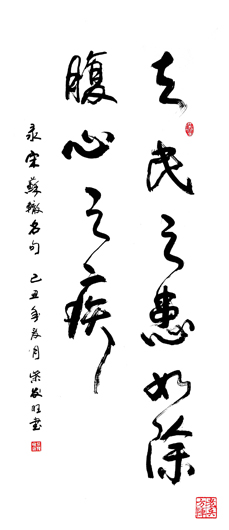 去民之患如除
腹心之疾
录宋苏辙名句 己丑年冬月 柴敬旺书